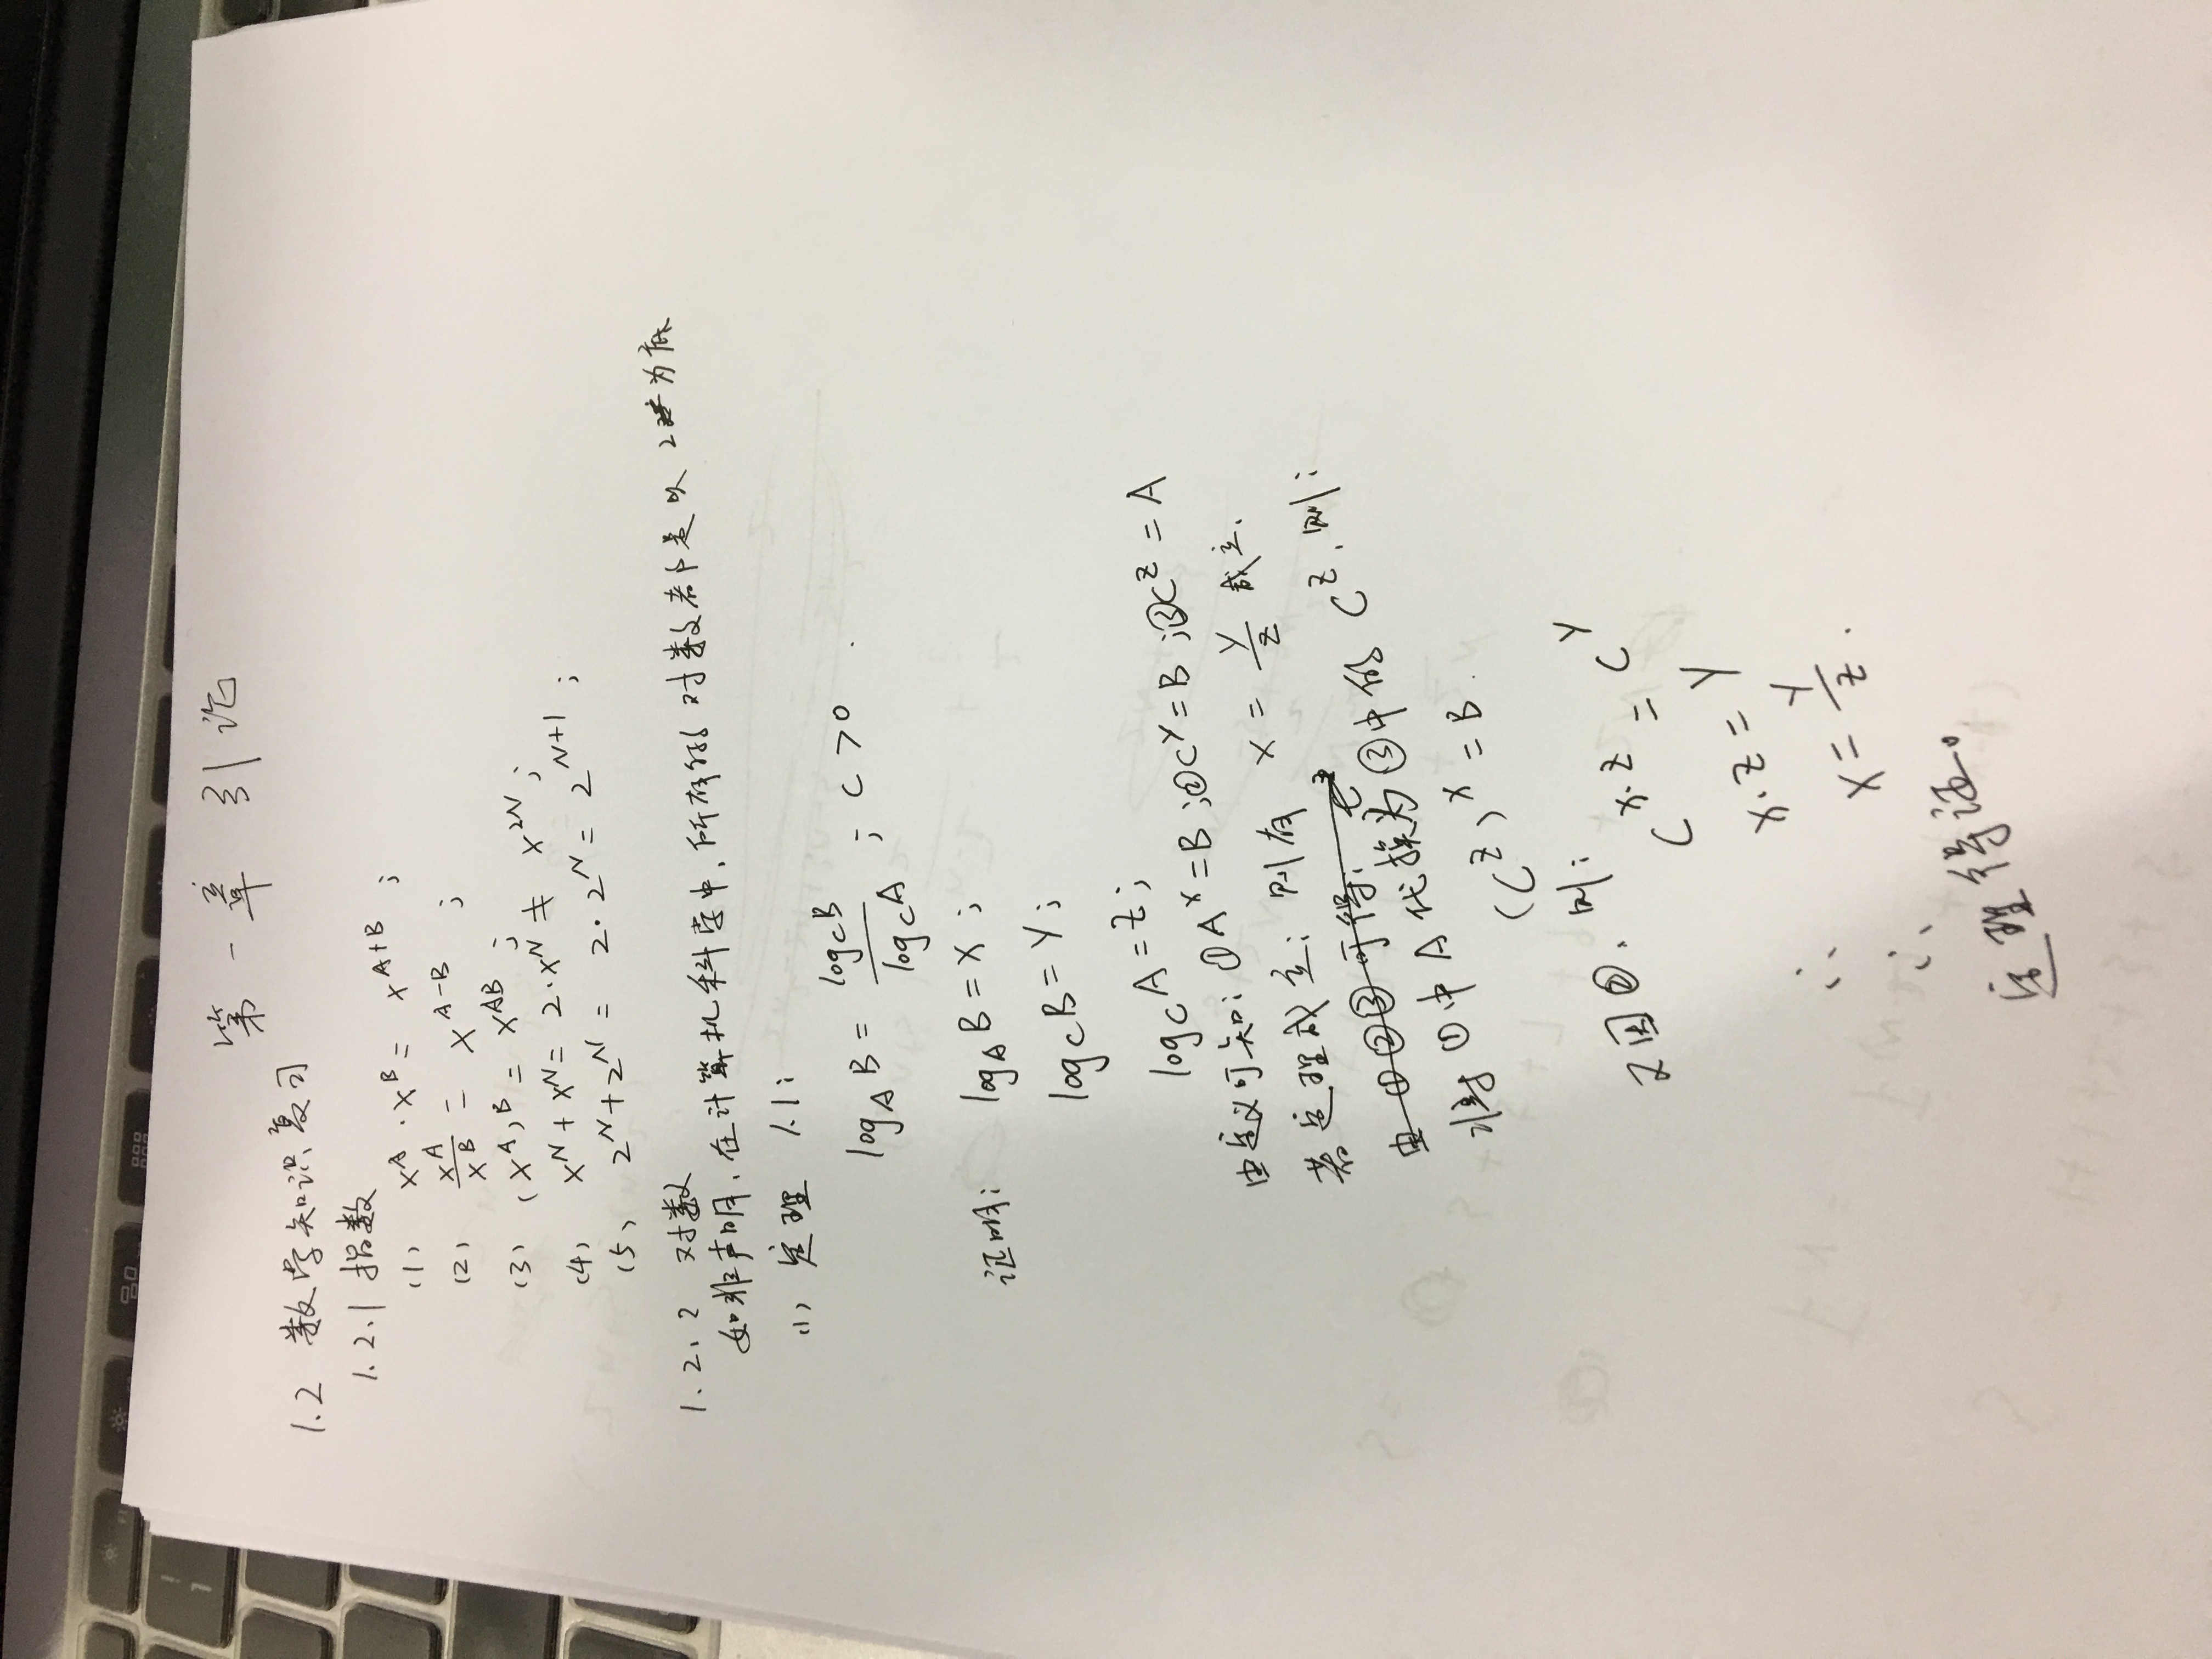 第一章 引论
1.2 数学知识复习
1.2.1 指数
(1) X^A · X^B = X^{A+B} ;
(2) X^A / X^B = X^{A-B} ;
(3) (X^A)^B = X^{AB} ;
(4) X^N + X^N = 2·X^N ≠ X^{2N} ;
(5) 2^N + 2^N = 2·2^N = 2^{N+1} ;
1.2.2 对数
如非声明、在计算机科学中、所有的对数都是以 2 为底
(1) 定理 1.1:
log_A B = log_C B / log_C A ; C > 0 .
证明: log_A B = X ;
log_C B = Y ;
log_C A = Z ;
由定义可知: ①A^X = B ;②C^Y = B ;③C^Z = A
若定理成立; 则有 X = Y / Z 成立.
由 ①②③ 可得:
将 ①中 A 代换为 ③中的 C^Z、则:
(C^Z)^X = B .
又因②、则:
C^{X·Z} = C^Y
∴ X·Z = Y
∴ X = Y / Z .
定理得证。